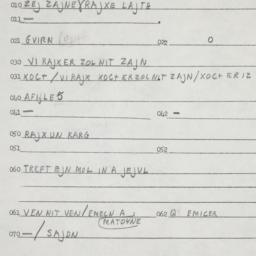 020 ZEJ ZAJNEN RAJXE LAJTE
021 —
025 GVIRN 028 0
030 VI RAJX ER ZOL NIT ZAJN
033 XOCT / VI RAJX XOCT ER ZOL NIT ZAJN / XOCT ER IZ
040 AFILE
041 — 043 —
050 RAJX UN KARG
051 052
060 TREFT EJN MOL IN A JEJVL
061 VEN NIT VEN / EMECN A MATOVNE 062 Q EMICER
070 — / SAJDN